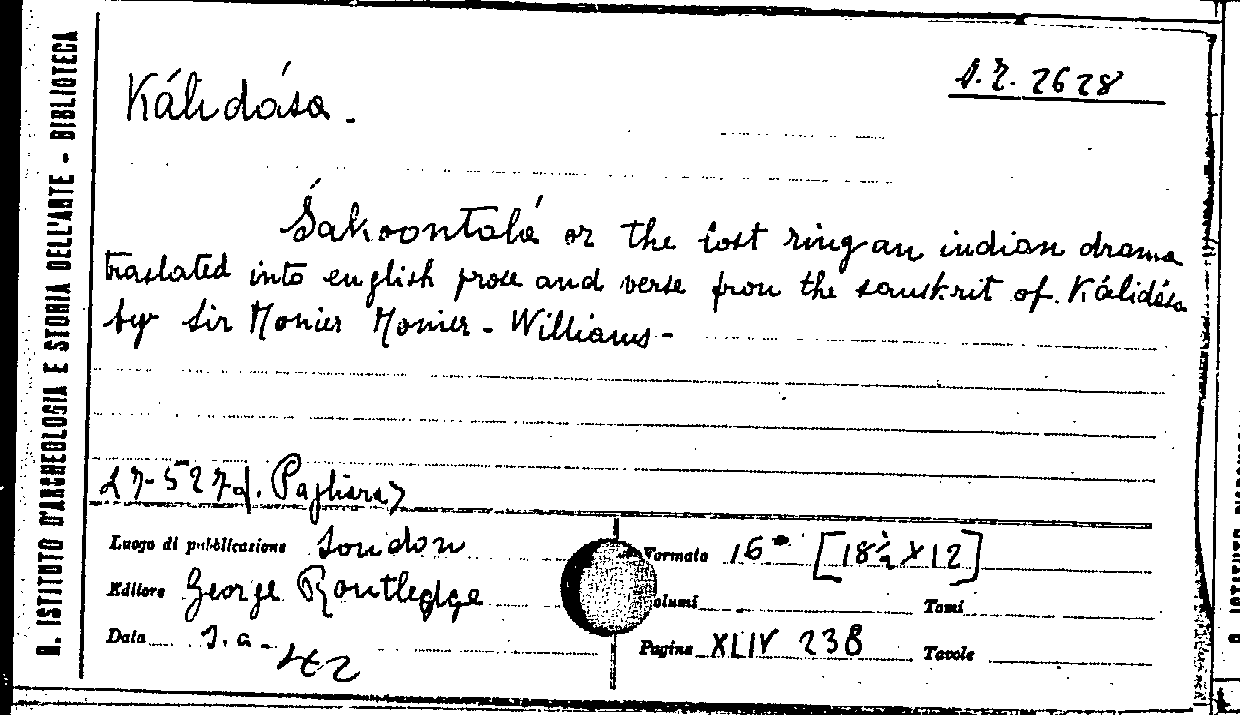 R. ISTITUTO D'ARCHEOLOGIA E STORIA DELL'ARTE - BIBLIOTECA
Kálidása.
S.R. 2628
Śakoontalá or the lost ring an indian drama
traslated into english prose and verse from the sanskrit of Kálidása
by Sir Monier Monier-Williams-
27-527 d. Pagliara>
Luogo di pubblicazione London
Formato 16° [18½ X 12]
Editore George Routledge
olumi
Tomi
Data s.a.
Pagine XLIV 238
Tavole